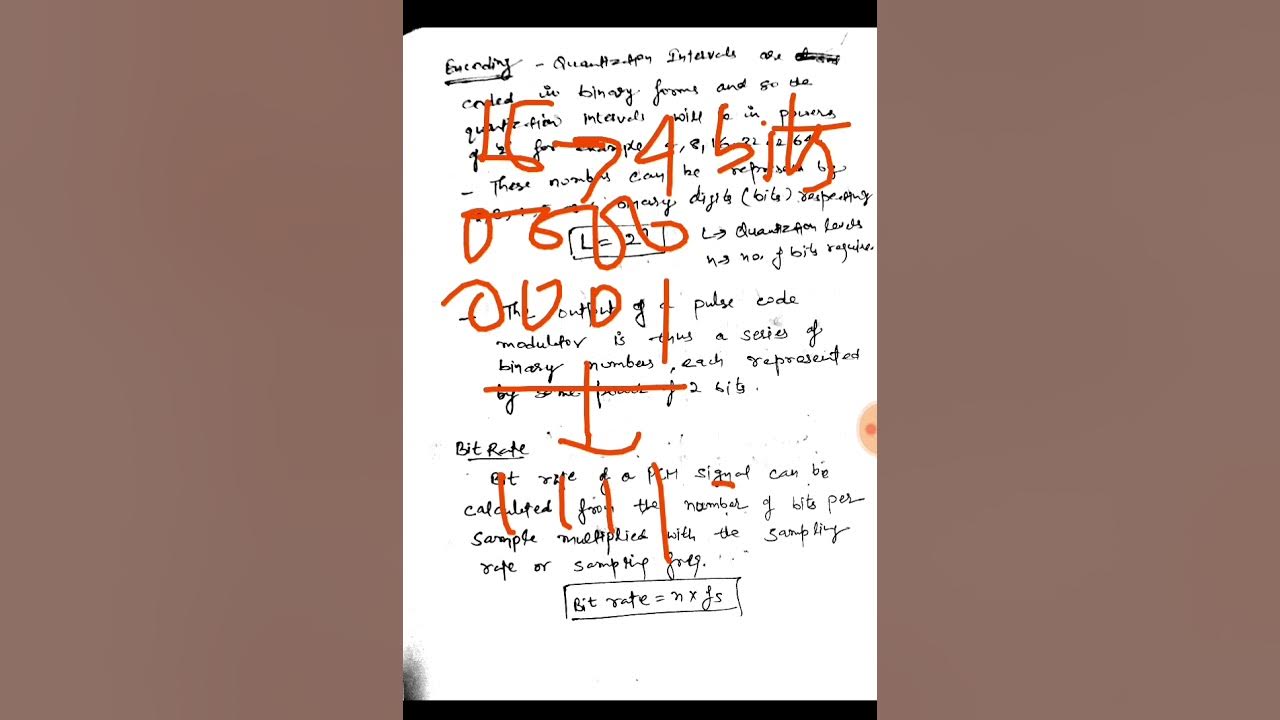 Encoding - Quantization Intervals are
coded in binary forms and so the
quantization intervals will be in powers
for example
16 → 4 bits
- These numbers can be represented by
binary digits (bits) respecting
0 0 0 0
L = 2ⁿ
L → Quantization levels
n → no. of bits require.
0 0 0 1
- The output of a pulse code
modulator is thus a series of
binary numbers, each represented
by some power of 2 bits.
Bit Rate
Bit rate of a PCM signal can be
1 1 1 1
calculated from the number of bits per
sample multiplied with the sampling
rate or sampling freq.
Bit rate = n x fs